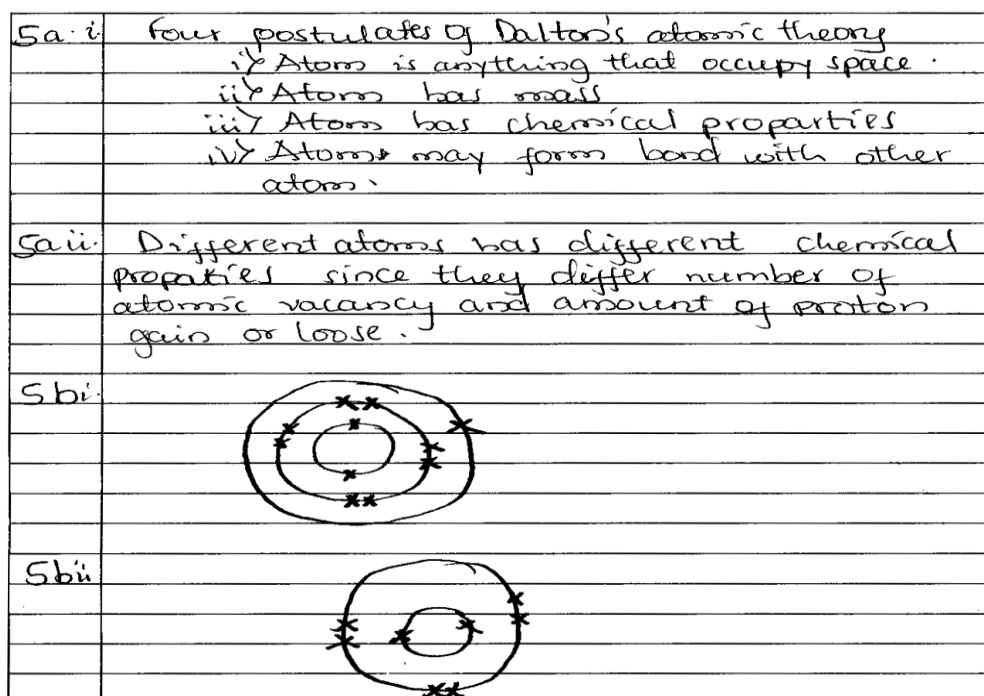 5a.i Four postulates of Dalton's atomic theory
i> Atom is anything that occupy space.
ii> Atom has mass
iii> Atom has chemical proparties
iv> Atom may form bond with other
atom.
5a ii. Different atoms has different chemical
propaties since they differ number of
atomic vacancy and amount of proton
gain or loose.
5bi.
5bii